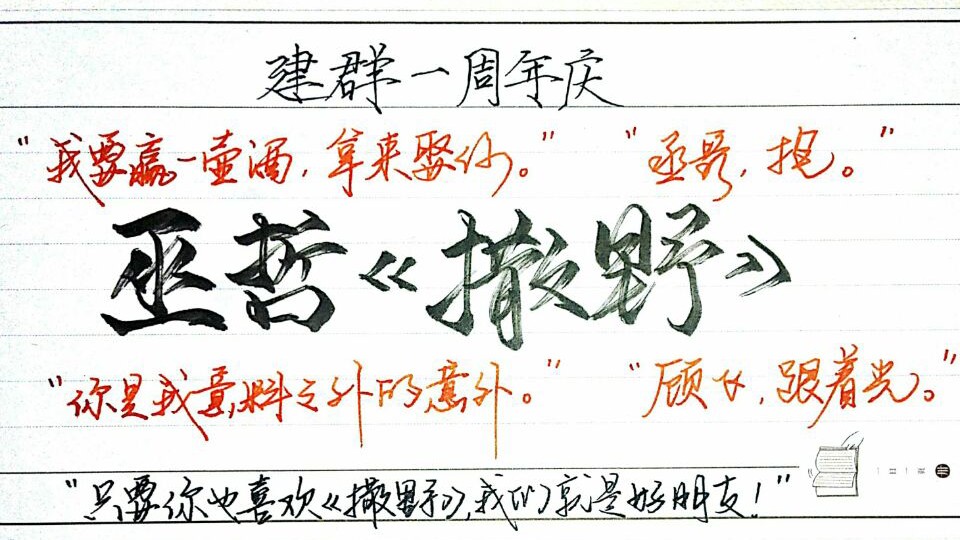 建群一周年庆
"我要赢一壶酒，拿来娶你。" "丞哥，抱。"
巫哲《撒野》
"你是我意料之外的意外。" "顾飞，跟着光。"
"只要你也喜欢《撒野》，我们就是好朋友！"